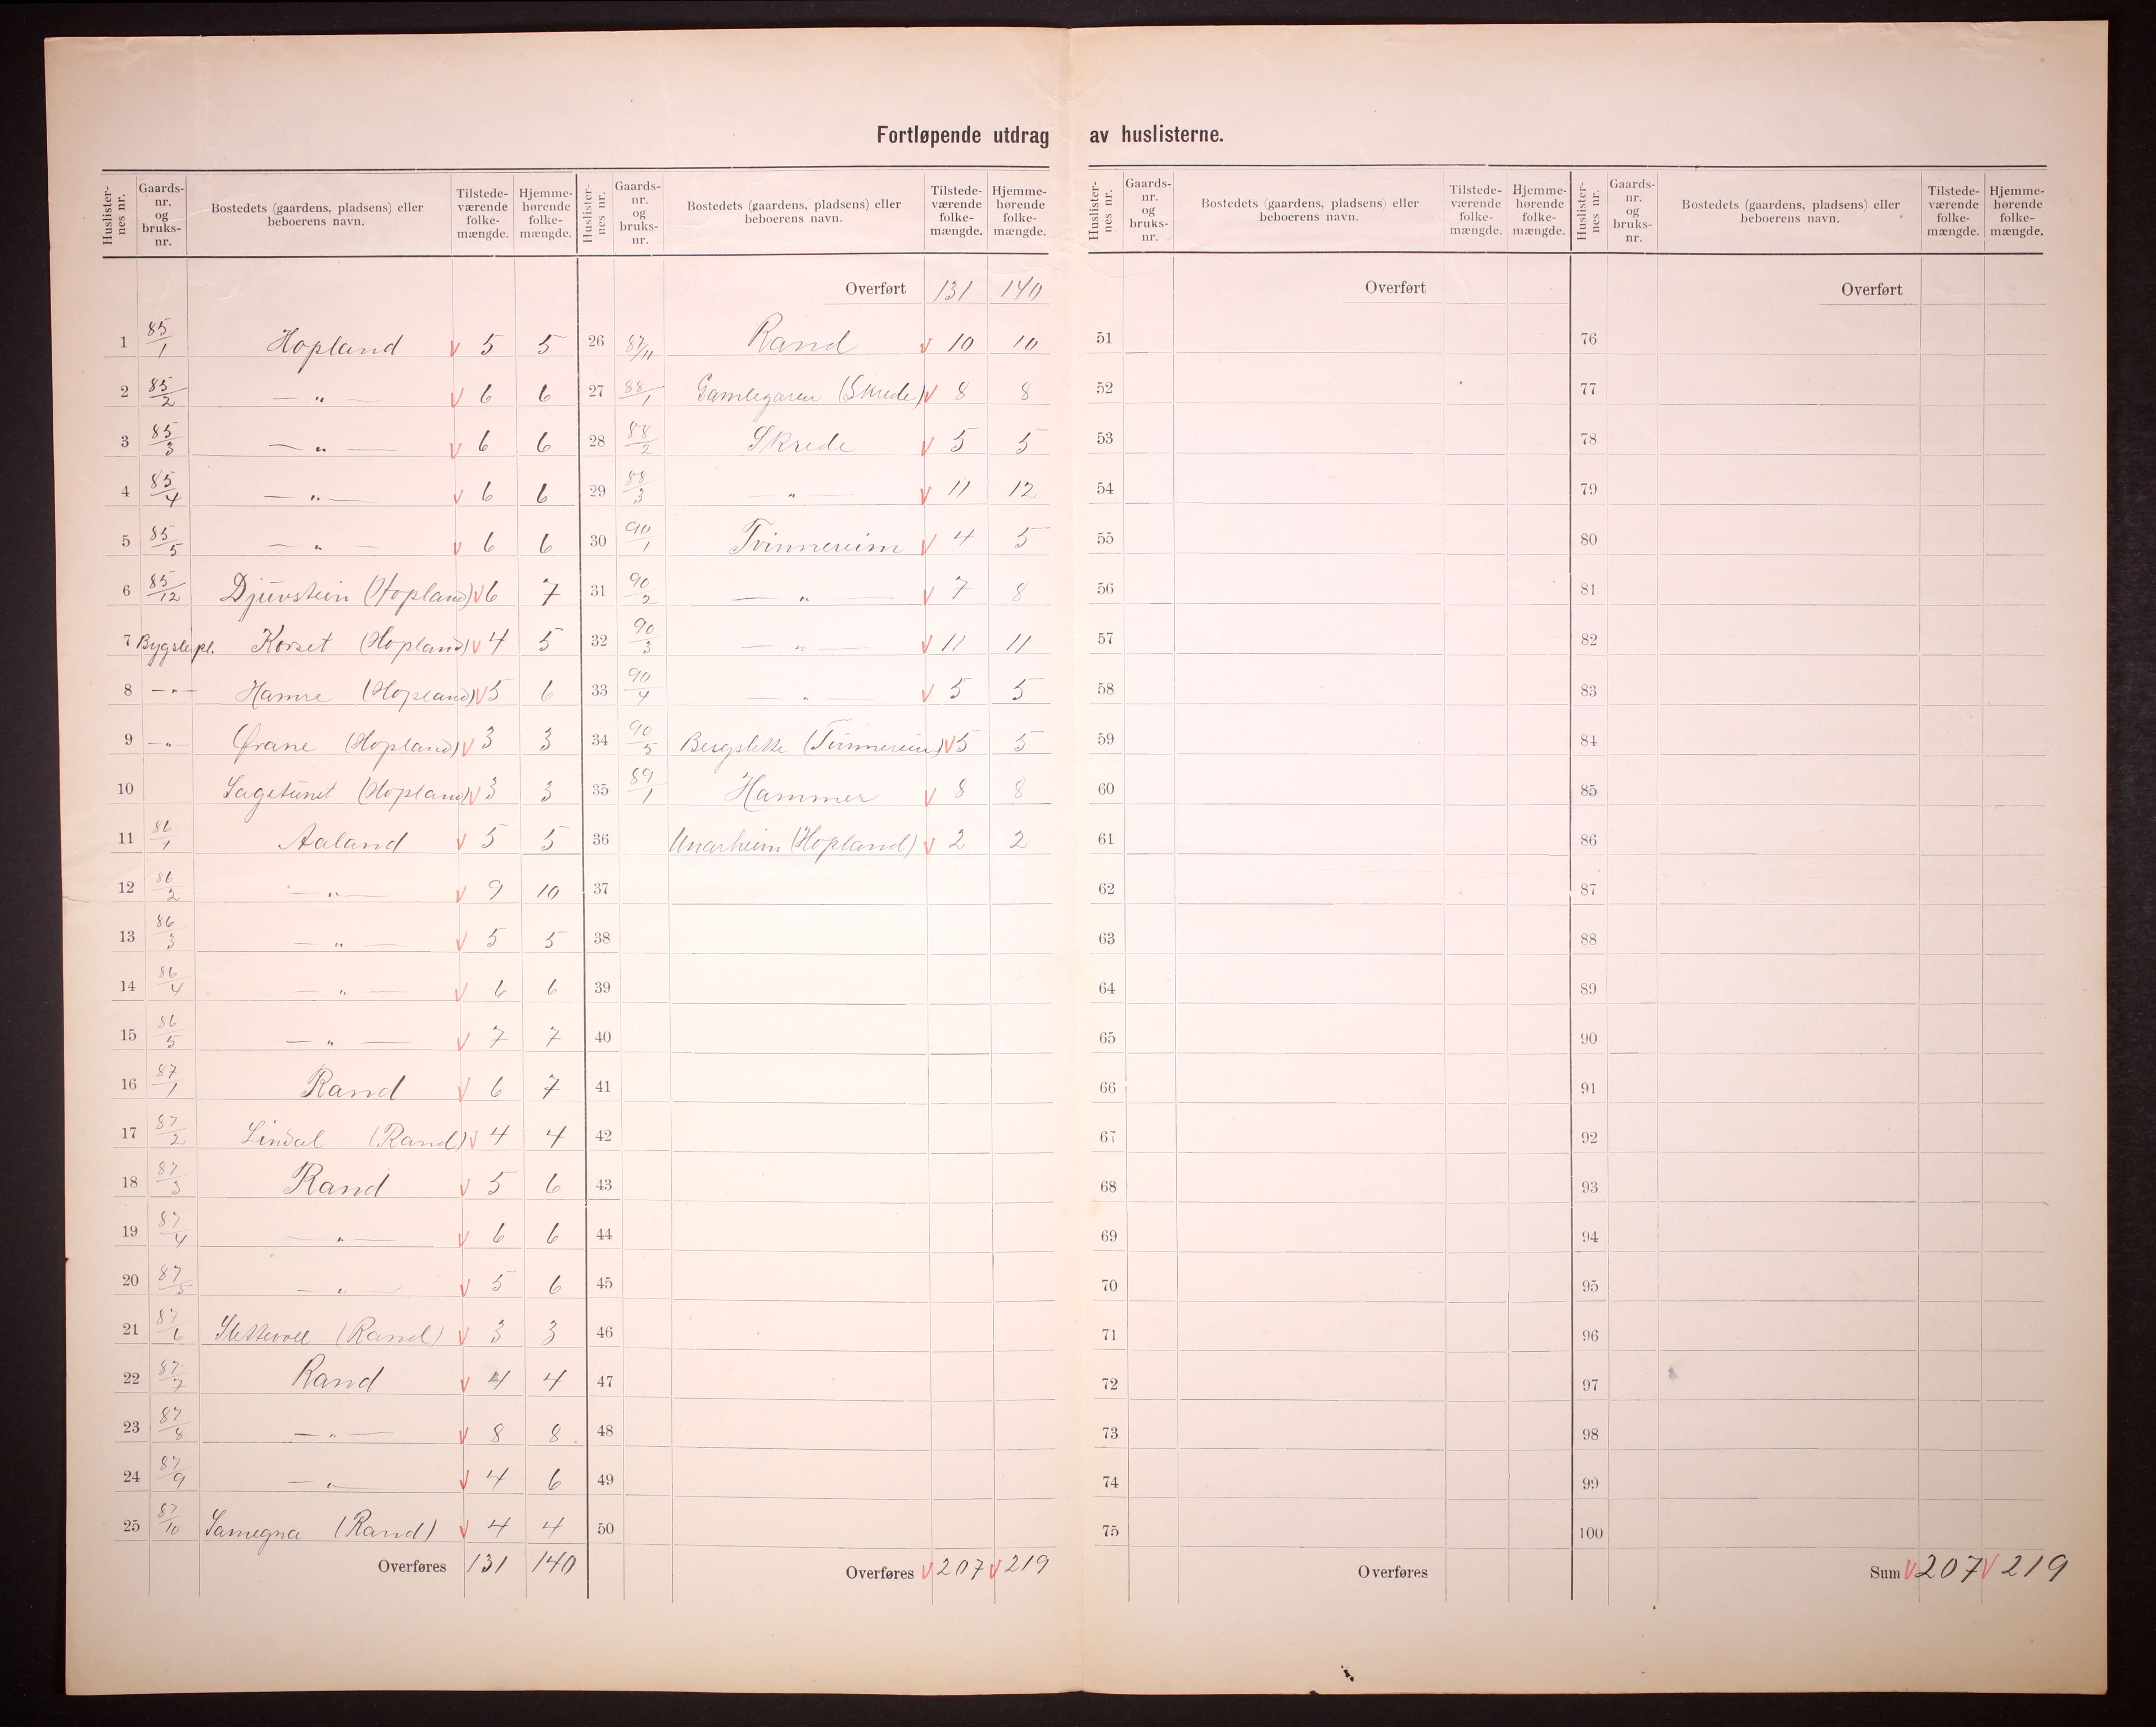 Fortløpende utdrag av huslisterne.
Huslister-nes nr. Gaards-nr. og bruks-nr. Bostedets (gaardens, pladsens) eller beboerens navn. Tilstede-værende folke-mængde. Hjemme-hørende folke-mængde.
1 85/1 Hopland V 5 5
2 85/2 — „ — V 6 6
3 85/3 — „ — V 6 6
4 85/4 — „ — V 6 6
5 85/5 — „ — V 6 6
6 85/12 Djuvstein (Hopland) V 6 7
7 Bygslepl. Korset (Hopland) V 4 5
8 — „ — Hamre (Hopland) V 5 6
9 — „ — Ørane (Hopland) V 3 3
10 Sagetunet (Hopland) V 3 3
11 86/1 Aaland V 5 5
12 86/2 — „ — V 9 10
13 86/3 — „ — V 5 5
14 86/4 — „ — V 6 6
15 86/5 — „ — V 7 7
16 87/1 Rand V 6 7
17 87/2 Lindal (Rand) V 4 4
18 87/3 Rand V 5 6
19 87/4 — „ — V 6 6
20 87/5 — „ — V 5 6
21 87/6 Slettevoll (Rand) V 3 3
22 87/7 Rand V 4 4
23 87/8 — „ — V 8 8
24 87/9 — „ — V 4 6
25 87/10 (Rand) V 4 4
Overføres 131 140
Huslister-nes nr. Gaards-nr. og bruks-nr. Bostedets (gaardens, pladsens) eller beboerens navn. Tilstede-værende folke-mængde. Hjemme-hørende folke-mængde.
Overført 131 140
26 87/11 Rand V 10 10
27 88/1 Gamlegaren (Skrede) V 8 8
28 88/2 Skrede V 5 5
29 88/3 — „ — V 11 12
30 90/1 Tvinnereim V 4 5
31 90/2 — „ — V 7 8
32 90/3 — „ — V 11 11
33 90/4 — „ — V 5 5
34 90/5 Bergslette (Tvinnereim) V 5 5
35 89/1 Hammer V 8 8
36 (Hopland) V 2 2
37
38
39
40
41
42
43
44
45
46
47
48
49
50
Overføres V 207 V 219
Huslister-nes nr. Gaards-nr. og bruks-nr. Bostedets (gaardens, pladsens) eller beboerens navn. Tilstede-værende folke-mængde. Hjemme-hørende folke-mængde.
Overført
51
52
53
54
55
56
57
58
59
60
61
62
63
64
65
66
67
68
69
70
71
72
73
74
75
Overføres
Huslister-nes nr. Gaards-nr. og bruks-nr. Bostedets (gaardens, pladsens) eller beboerens navn. Tilstede-værende folke-mængde. Hjemme-hørende folke-mængde.
Overført
76
77
78
79
80
81
82
83
84
85
86
87
88
89
90
91
92
93
94
95
96
97
98
99
100
Sum V 207 V 219